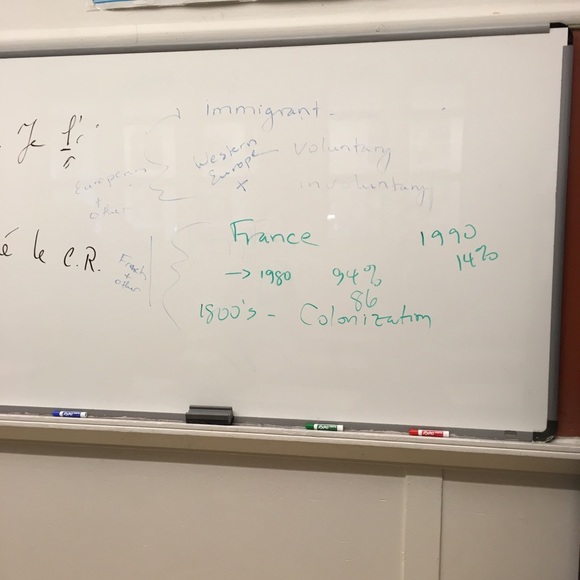 Immigrant -
Je fi
Western
Europe
+
voluntary
involuntary
European
+
other
é le C.R.
French
+
other
France
1990
14%
→ 1980 94%
86
1800's - Colonization